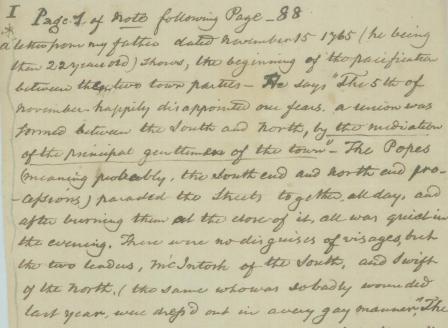 I Page 1 of Note following Page - 88
* a letter from my father dated November 15 1765 (he being
then 22 years old) shows, the beginning of the pacification
between the two town parties - He says "The 5th of
November happily disappointed our fears. a union was
formed between the South and North, by the mediation
of the principal gentlemen of the town" - The Popes
(meaning probably, the south end and north end pro-
cessions) paraded the Streets together, all day, and
after burning them at the close of it, all was quiet in
the evening. There were no disguises of visages, but
the two leaders, McIntosh of the South, and Swift
of the North, (the same who was so badly wounded
last year, were dress'd out in a very gay manner." The